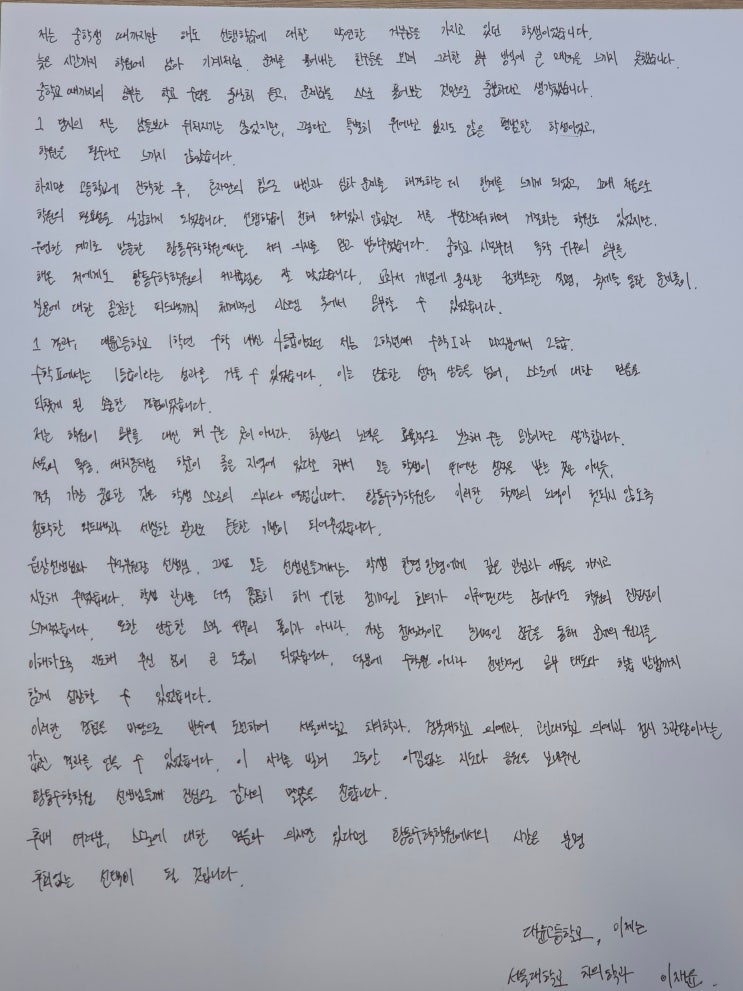 저는 중학생 때까지만 해도 선행학습에 대한 막연한 거부감을 가지고 있던 학생이었습니다.
늦은 시간까지 학원에 남아 기계처럼 문제를 풀어내는 친구들을 보며 그러한 공부 방식에 큰 매력을 느끼지 못했습니다.
중학교 때까지의 공부는 학교 수업을 충실히 듣고, 문제집을 스스로 풀어보는 것만으로 충분하다고 생각했습니다.
그 당시의 저는 남들보다 뒤처지기는 싫었지만, 그렇다고 특별히 뛰어나고 싶지도 않은 평범한 학생이었고,
학원은 필수라고 느끼지 않았습니다.
하지만 고등학교에 진학한 후, 혼자만의 힘으로 내신과 심화 문제를 해결하는 데 한계를 느끼게 되었고, 그때 처음으로
학원의 필요성을 실감하게 되었습니다. 선행학습이 전혀 되어있지 않았던 저를 부담스러워하며 거절하는 학원도 있었지만,
우연한 계기로 방문한 황통수학학원에서는 저의 의지를 믿고 받아주었습니다. 중학교 시절부터 독학 위주의 공부를
해온 저에게도 황통수학학원의 커리큘럼은 잘 맞았습니다. 교과서 개념에 충실한 컴팩트한 설명, 숙제를 통한 문제풀이,
질문에 대한 꼼꼼한 피드백까지 체계적인 시스템 속에서 공부할 수 있었습니다.
그 결과, 대륜고등학교 1학년 수학 내신 4등급이었던 저는 2학년때 수학I과 미적분에서 2등급,
수학II에서는 1등급이라는 성과를 거둘 수 있었습니다. 이는 단순한 성적 상승을 넘어, 스스로에 대한 믿음을
되찾게 된 소중한 경험이었습니다.
저는 학원이 공부를 대신 해 주는 곳이 아니라, 학생의 노력을 효율적으로 보조해 주는 공간이라고 생각합니다.
서울의 목동, 대치동처럼 학군이 좋은 지역에 있다고 해서 모든 학생이 뛰어난 성적을 받는 것은 아니듯,
결국 가장 중요한 것은 학생 스스로의 의지와 열정입니다. 황통수학학원은 이러한 학생의 노력이 헛되지 않도록
정확한 피드백과 세밀한 관리로 든든한 기반이 되어주었습니다.
원장선생님과 부원장 선생님, 그리고 모든 선생님들께서는, 학생 한명 한명에게 깊은 관심과 애정을 가지고
지도해 주셨습니다. 학생 관리를 더욱 촘촘히 하기 위한 정기적인 회의가 이루어진다는 점에서도 학원의 진정성이
느껴졌습니다. 또한 단순한 스킬 위주의 풀이가 아니라, 가장 정석적이고 현실적인 접근을 통해 문제의 원리를
이해하도록 지도해 주신 점이 큰 도움이 되었습니다. 덕분에 수학뿐 아니라 전반적인 공부 태도와 학습 방법까지
함께 성장할 수 있었습니다.
이러한 경험을 바탕으로 반수에 도전하여 서울대학교 치의학과, 경북대학교 의예과, 고신대학교 의예과 정시 3관왕이라는
값진 결과를 얻을 수 있었습니다. 이 자리를 빌려 그동안 아낌없는 지도와 응원을 보내주신
황통수학학원 선생님들께 진심으로 감사의 말씀을 전합니다.
후배 여러분, 스스로에 대한 믿음과 의지만 있다면 황통수학학원에서의 시간은 분명
후회없는 선택이 될 것입니다.
대륜고등학교, 이제는
서울대학교 치의학과 이재윤.